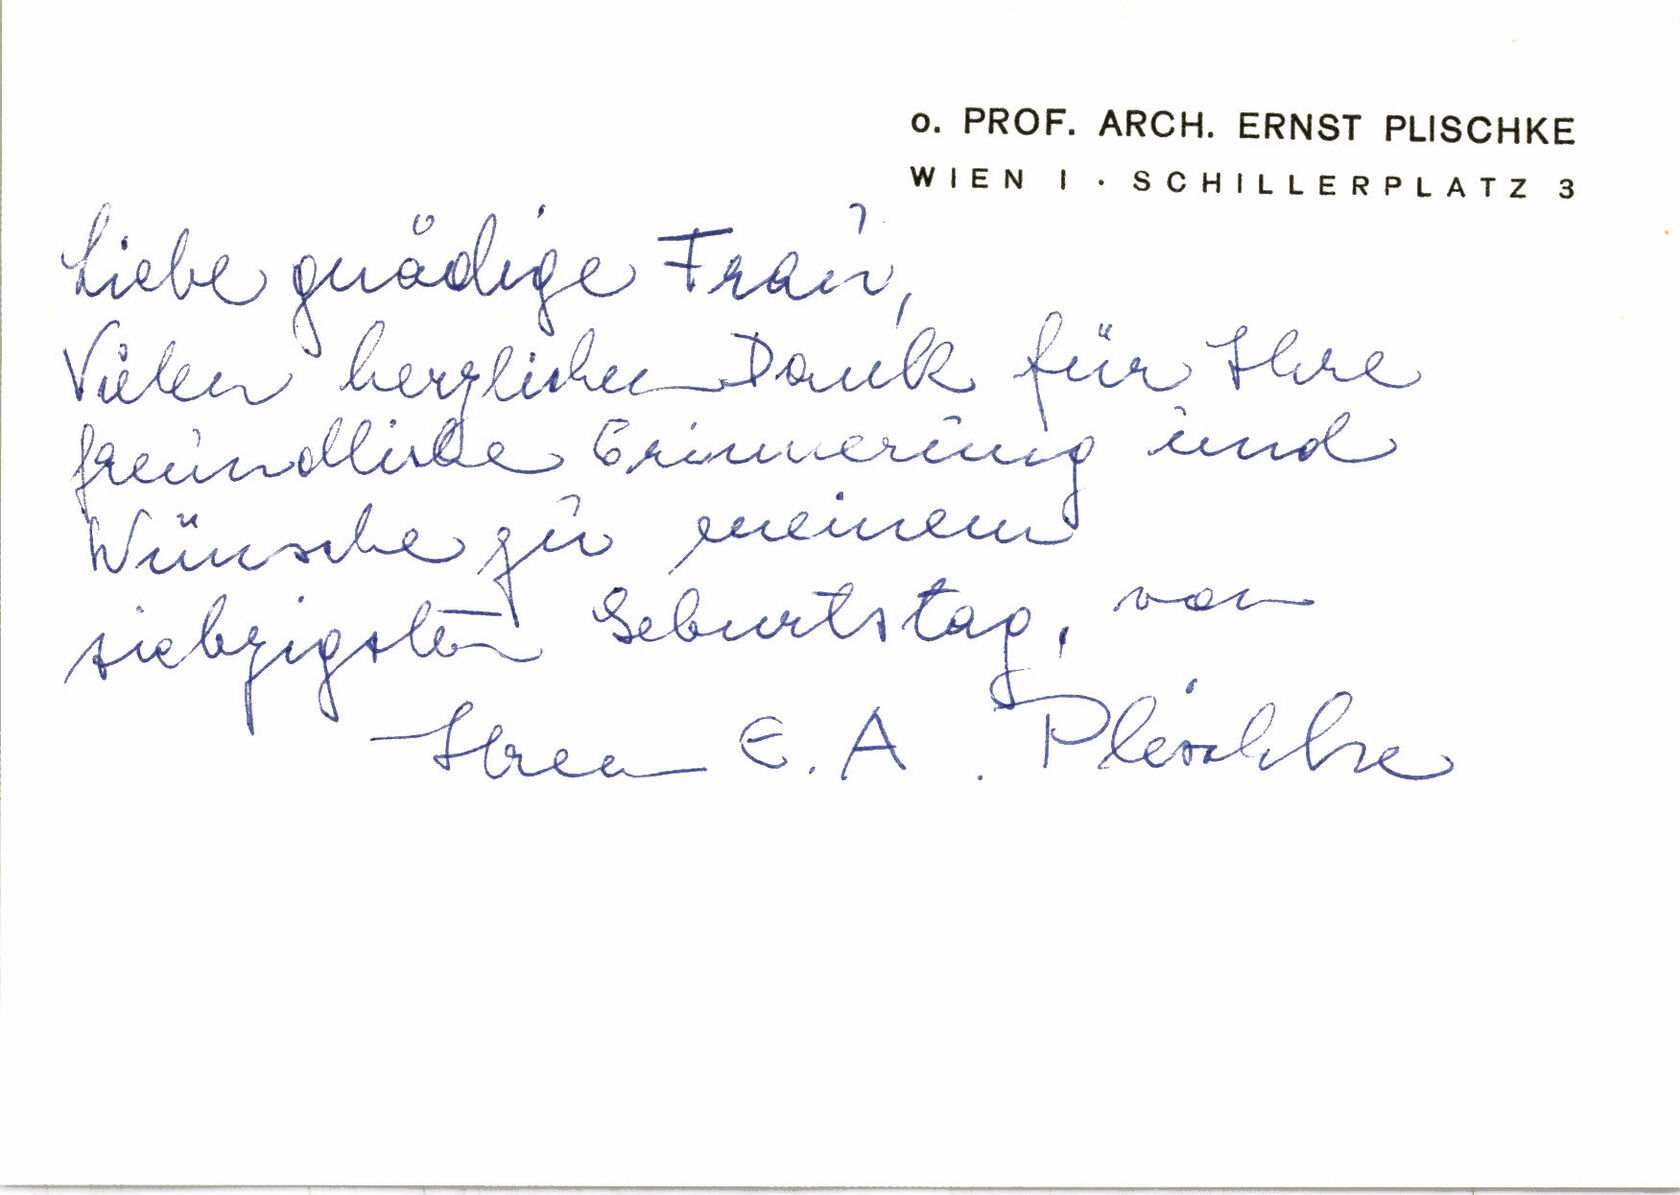 o. PROF. ARCH. ERNST PLISCHKE
WIEN I · SCHILLERPLATZ 3
Liebe gnädige Frau,
Vielen herzlichen Dank für Ihre
freundliche Erinnerung und
Wünsche zu meinem
siebzigsten Geburtstag, von
Ihrem E. A. Plischke